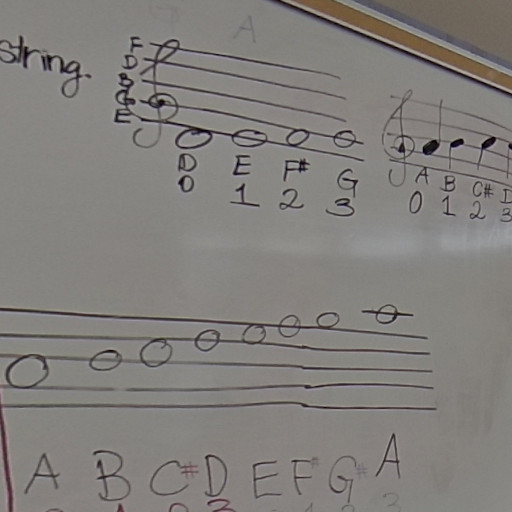 string.
A
F
D
B
G
E
D E F# G
0 1 2 3
A B C# D
0 1 2 3
A B C# D E F# G# A
3 3